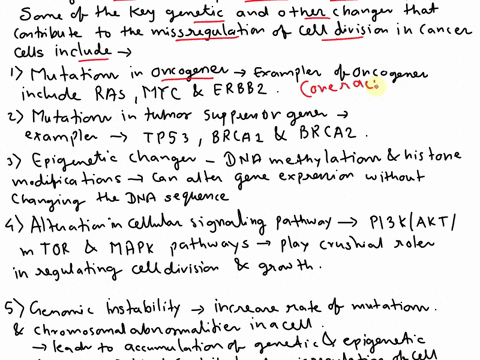 Some of the key genetic and other changes that
contribute to the missregulation of cell division in cancer
cells include →
1) Mutation in oncogenes → Examples of oncogenes
include RAS, MYC & ERBB2. (onerac
2) Mutations in tumor suppressor genes →
examples → TP53, BRCA1 & BRCA2.
3) Epigenetic changes - DNA methylation & histone
modifications → Can alter gene expression without
changing the DNA sequence
4) Alteration in cellular signaling pathway → PI3K/AKT/
mTOR & MAPK pathways → play crushial roles
in regulating cell division & growth.
5) Genomic instability → increase rate of mutation.
& chromosomal abnormalities in a cell.
→ leads to accumulation of genetic & epigenetic